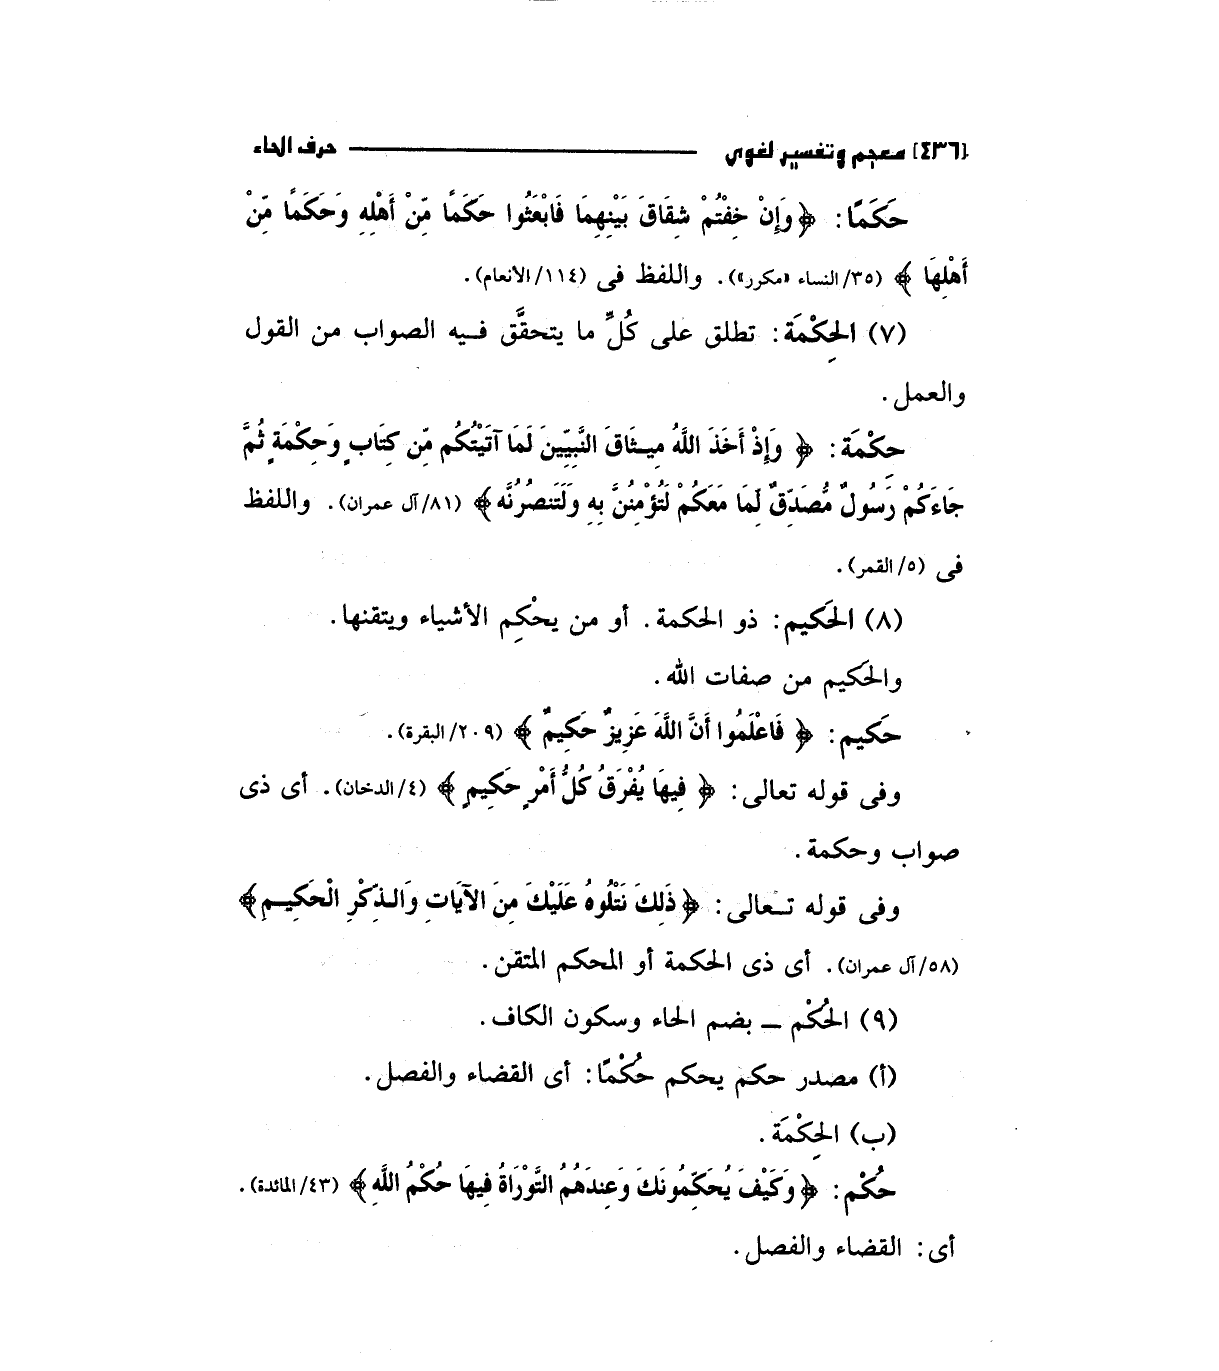 [٤٣٦] معجم وتفسير لغوي ــــــــ حرف الحاء
حَكَمًا: ﴿ وَإِنْ خِفْتُمْ شِقَاقَ بَيْنِهِمَا فَابْعَثُوا حَكَمًا مِّنْ أَهْلِهِ وَحَكَمًا مِّنْ
أَهْلِهَا ﴾ (٣٥/ النساء «مكرر»). واللفظ فى (١١٤/ الأنعام).
(٧) الحِكْمَة: تطلق على كُلِّ ما يتحقَّق فيه الصواب من القول
والعمل.
حِكْمَة: ﴿ وَإِذْ أَخَذَ اللَّهُ مِيثَاقَ النَّبِيِّينَ لَمَا آتَيْتُكُم مِّن كِتَابٍ وَحِكْمَةٍ ثُمَّ
جَاءَكُمْ رَسُولٌ مُّصَدِّقٌ لِّمَا مَعَكُمْ لَتُؤْمِنُنَّ بِهِ وَلَتَنصُرُنَّه ﴾ (٨١/ آل عمران). واللفظ
فى (٥/ القمر).
(٨) الحَكيم: ذو الحكمة. أو من يحْكِم الأشياء ويتقنها.
والحَكيم من صفات الله.
حَكيم: ﴿ فَاعْلَمُوا أَنَّ اللَّهَ عَزِيزٌ حَكِيمٌ ﴾ (٢٠٩/ البقرة).
وفى قوله تعالى: ﴿ فِيهَا يُفْرَقُ كُلُّ أَمْرٍ حَكِيمٍ ﴾ (٤/ الدخان). أى ذى
صواب وحكمة.
وفى قوله تعالى: ﴿ ذَلِكَ نَتْلُوهُ عَلَيْكَ مِنَ الآيَاتِ وَالذِّكْرِ الْحَكِيمِ ﴾
(٥٨/ آل عمران). أى ذى الحكمة أو المحكم المتقن.
(٩) الحُكْم ــ بضم الحاء وسكون الكاف.
(أ) مصدر حكم يحكم حُكْمًا: أى القضاء والفصل.
(ب) الحِكْمَة.
حُكْم: ﴿ وَكَيْفَ يُحَكِّمُونَكَ وَعِندَهُمُ التَّوْرَاةُ فِيهَا حُكْمُ اللَّهِ ﴾ (٤٣/ المائدة).
أى: القضاء والفصل.